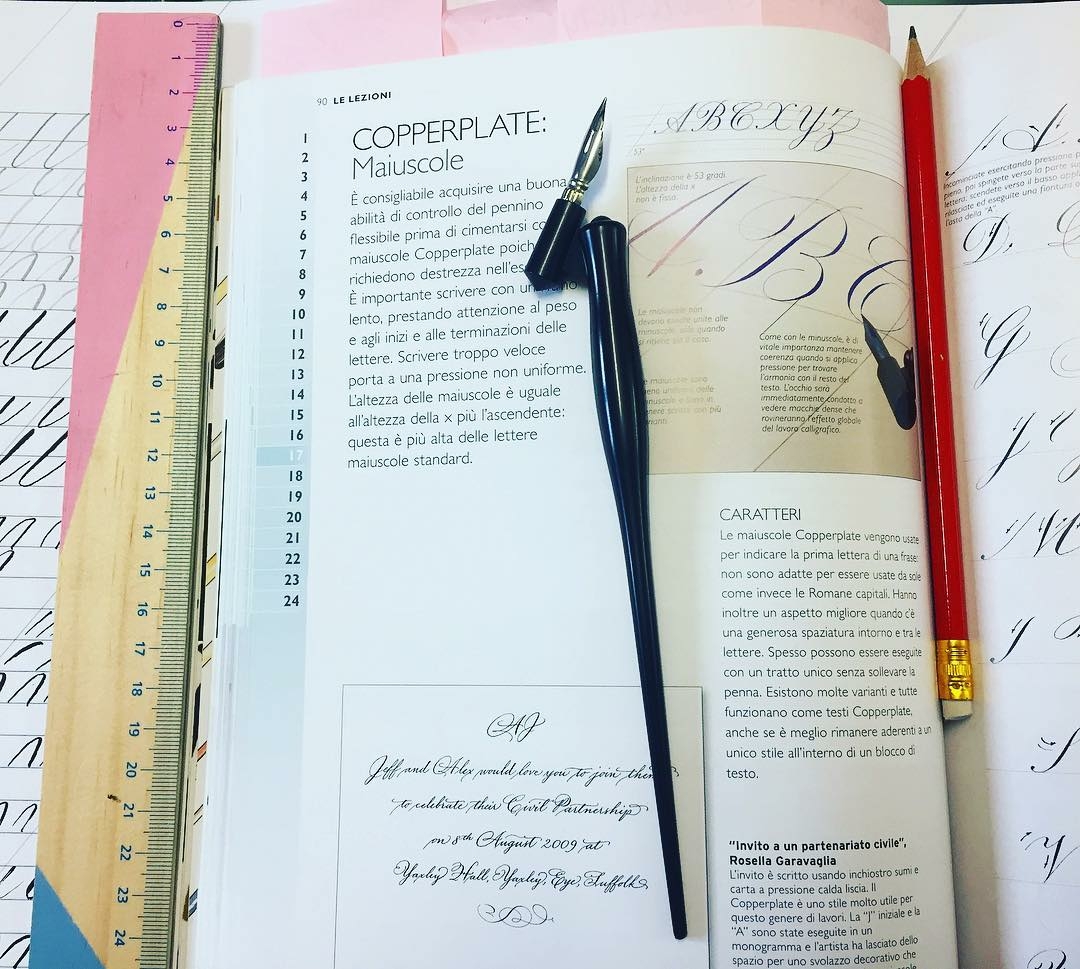 90 LE LEZIONI
1
2
3
4
5
6
7
8
9
10
11
12
13
14
15
16
17
18
19
20
21
22
23
24
COPPERPLATE:
Maiuscole
È consigliabile acquisire una buona
abilità di controllo del pennino
flessibile prima di cimentarsi
maiuscole Copperplate
richiedono destrezza
È importante scrivere con
lento, prestando attenzione al peso
e agli inizi e alle terminazioni delle
lettere. Scrivere troppo veloce
porta a una pressione non uniforme.
L'altezza delle maiuscole è uguale
all'altezza della x più l'ascendente:
questa è più alta delle lettere
maiuscole standard.
ABCXYZ
53°
L'inclinazione è 53 gradi.
L'altezza della x
non è fissa.
A. B C
Le maiuscole non
devono essere unite alle
minuscole, solo quando
si ritiene sia il caso.
Come con le minuscole, è di
vitale importanza mantenere
coerenza quando si applica
pressione per trovare
l'armonia con il resto del
testo. L'occhio sarà
immediatamente condotto a
vedere macchie dense che
rovineranno l'effetto globale
del lavoro calligrafico.
CARATTERI
Le maiuscole Copperplate vengono usate
per indicare la prima lettera di una frase:
non sono adatte per essere usate da sole
come invece le Romane capitali. Hanno
inoltre un aspetto migliore quando c'è
una generosa spaziatura intorno e tra le
lettere. Spesso possono essere eseguite
con un tratto unico senza sollevare la
penna. Esistono molte varianti e tutte
funzionano come testi Copperplate,
anche se è meglio rimanere aderenti a un
unico stile all'interno di un blocco di
testo.
AJ
Jeff and Alex would love you to join them
to celebrate their Civil Partnership
on 8th August 2009 at
Yaxley Hall, Yaxley, Eye, Suffolk
"Invito a un partenariato civile",
Rosella Garavaglia
L'invito è scritto usando inchiostro sumi e
carta a pressione calda liscia. Il
Copperplate è uno stile molto utile per
questo genere di lavori. La "J" iniziale e la
"A" sono state eseguite in un
monogramma e l'artista ha lasciato dello
spazio per uno svolazzo decorativo che
0
1
2
3
4
5
6
7
8
9
10
11
12
13
14
15
16
17
18
19
20
21
22
23
24
A.
Incominciate esercitando pressione
pieno, poi spingete verso la parte
lettera: scendete verso il basso
rilasciate ed eseguite una fioritura
l'asta della "A".
D.
G
M